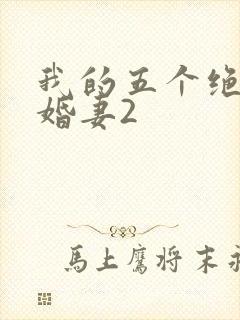 我的五个绝
婚妻2
马上鹰将末